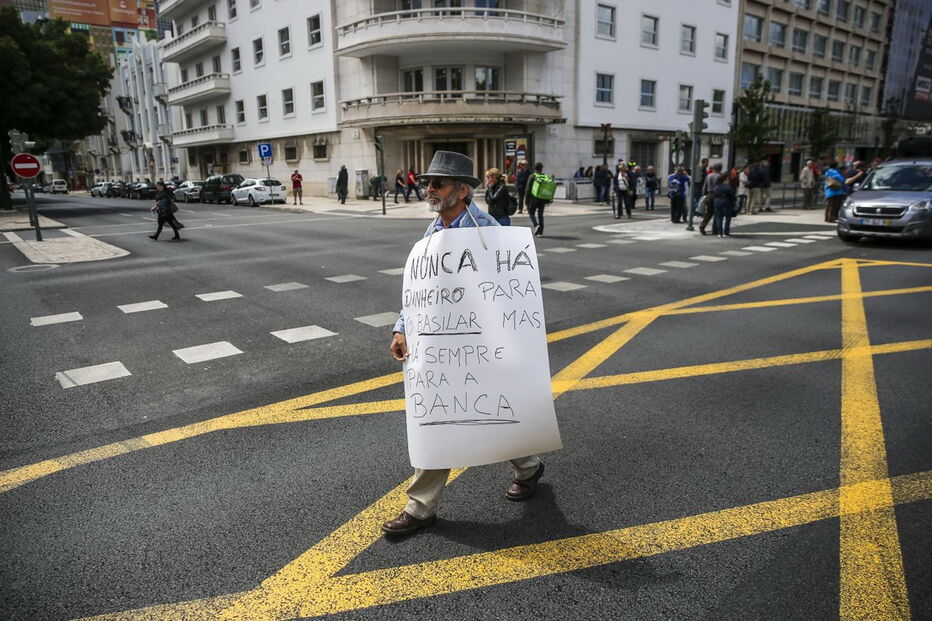 NONCA HÁ
DINHEIRO PARA
O BASILAR MAS
HÁ SEMPRE
PARA A
BANCA
P